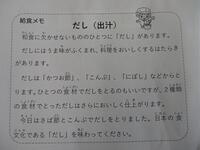 給食メモ
だし（出汁）
和食に欠かせないもののひとつに「だし」があります。
だしにはうま味がふくまれ、料理をおいしくするはたらき
があります。
だしは「かつお節」、「こんぶ」、「にぼし」などからと
ります。ひとつの食材でだしをとるのもいいですが、2種類
の食材でとっただしはさらにおいしく仕上がります。
今日はさば節とこんぶでだしをとりました。日本の食
文化である「だし」を味わってください。